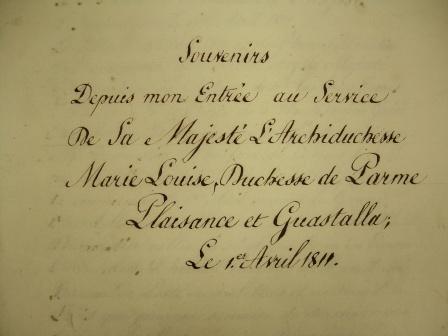 Souvenirs
Depuis mon Entrée au Service
De Sa Majesté L'Archiduchesse
Marie Louise, Duchesse de Parme
Plaisance et Guastalla;
Le 1.er Avril